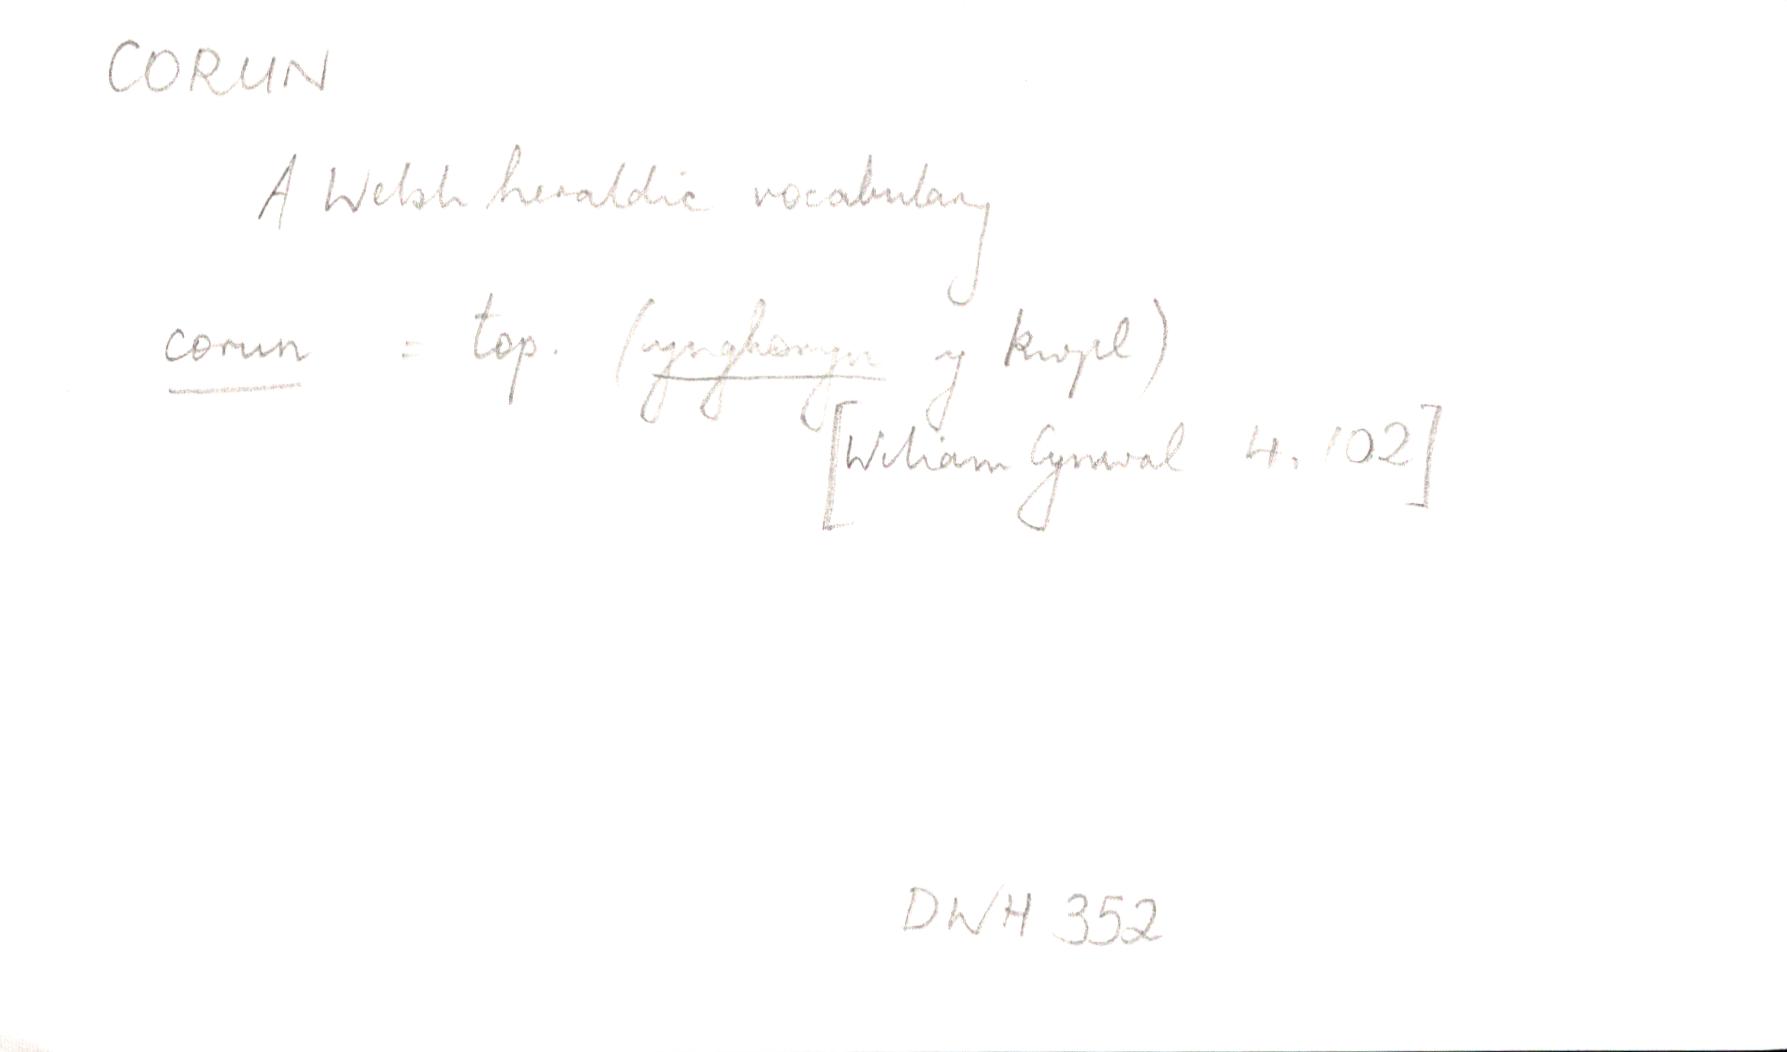 CORUN
A Welsh heraldic vocabulary
corun = top. (ynghorun y kwpl)
[Wiliam Cynwal 4. 102]
DWH 352